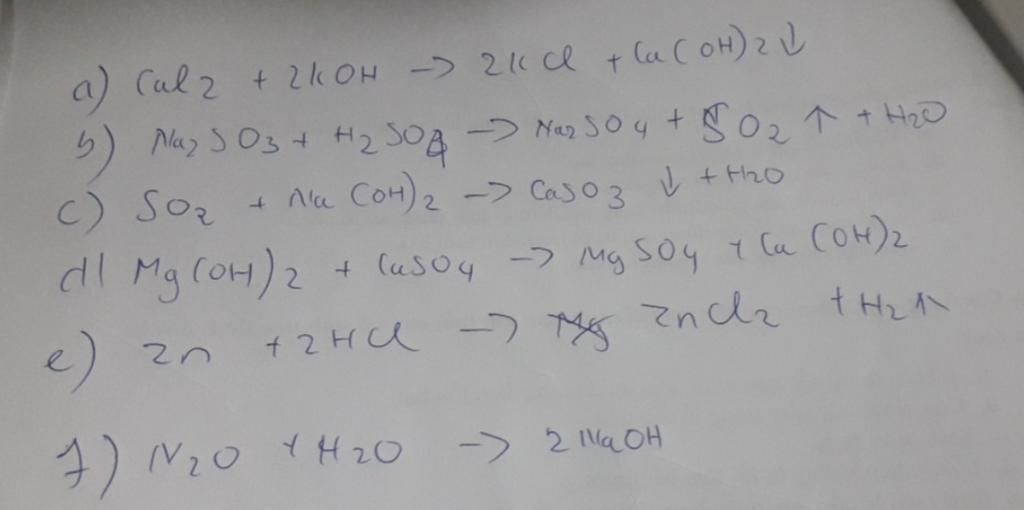 a) CaCl2 + 2KOH → 2KCl + Ca(OH)2↓
b) Na2SO3 + H2SO4 → Na2SO4 + SO2 ↑ + H2O
c) SO2 + Na(OH)2 → CaSO3 ↓ + H2O
d) Mg(OH)2 + CaSO4 → MgSO4 + Ca(OH)2
e) Zn + 2HCl → ZnCl2 + H2↑
f) N2O + H2O → 2NaOH